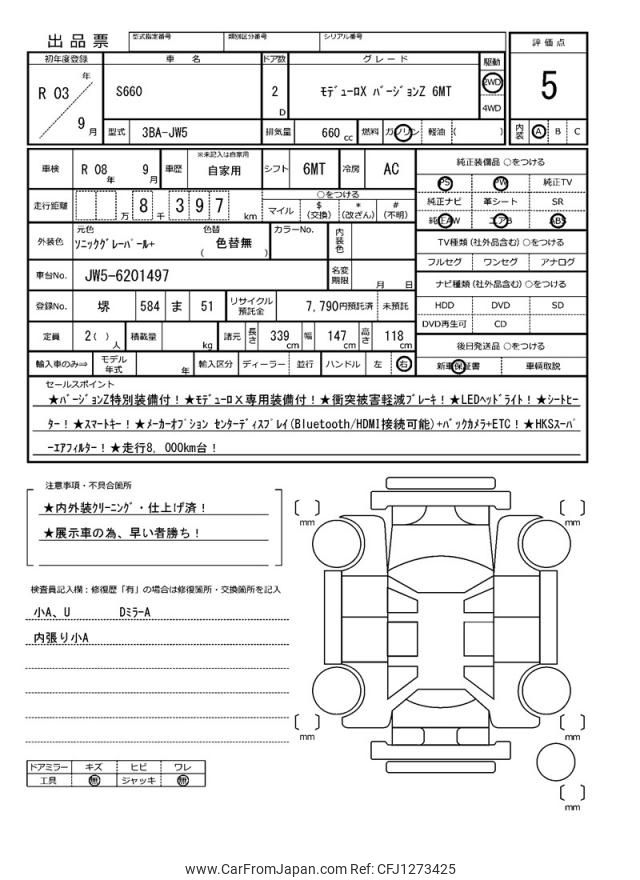 出品票
型式指定番号 類別区分番号 シリアル番号
初年度登録 車名 ドア数 グレード 駆動 評価点
R 03 年 9 月
S660 2 D モデューロX バージョンZ 6MT 2WD 4WD
5
型式 3BA-JW5 排気量 660 cc 燃料 ガソリン 軽油 ( )
内装 A B C
車検 R 08 年 9 月 車歴 ※未記入は自家用 自家用 シフト 6MT 冷房 AC
純正装備品 ○をつける
PS PW 純正TV
純正ナビ 革シート SR
純正AW エアB ABS
走行距離 万 8 千 3 9 7 km
○をつける
マイル $(交換) *(改ざん) #(不明)
外装色 元色 ソニックグレーパール+ 色替 ( 色替無 ) カラーNo. 内装色
TV種類 (社外品含む) ○をつける
フルセグ ワンセグ アナログ
車台No. JW5-6201497 名変期限 月 日
ナビ種類 (社外品含む) ○をつける
HDD DVD SD
DVD再生可 CD
登録No. 堺 584 ま 51 リサイクル預託金 7,790円預託済 未預託
定員 2( ) 人 積載量 kg 諸元 長さ 339 cm 幅 147 cm 高さ 118 cm
後日発送品 ○をつける
新車保証書 車輌取説
輸入車のみ⇒ モデル年式 年 輸入区分 ディーラー 並行 ハンドル 左 右
セールスポイント
★バージョンZ特別装備付！★モデューロX専用装備付！★衝突被害軽減ブレーキ！★LEDヘッドライト！★シートヒー
ター！★スマートキー！★メーカーオプション センターディスプレイ(Bluetooth/HDMI接続可能)+バックカメラ+ETC！★HKSスーパ
ーエアフィルター！★走行8,000km台！
注意事項・不具合箇所
★内外装クリーニング・仕上げ済！
★展示車の為、早い者勝ち！
検査員記入欄：修復歴「有」の場合は修復箇所・交換箇所を記入
小A、U DミラーA
内張り小A
[ ] mm
[ ] mm
[ ] mm
[ ] mm
[ ] mm
ドアミラー キズ ヒビ ワレ
工具 無 ジャッキ 無
www.CarFromJapan.com Ref: CFJ1273425